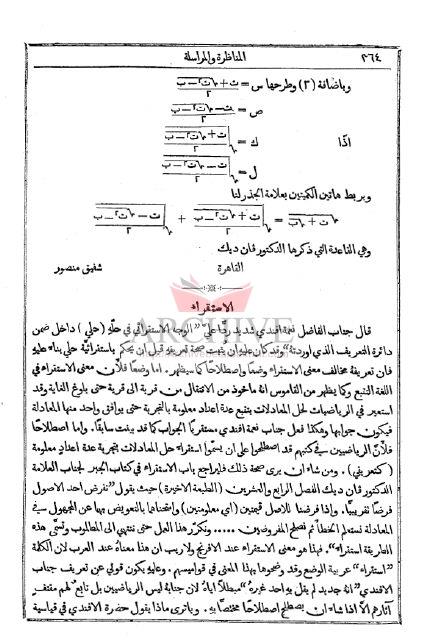 ٣٦٤
المناظرة والمراسلة
وباضافة (٢) وطرحها س = ت + √ت٢ ـ ب / ٢
ص = ت ـ √ت٢ ـ ب / ٢
اذًا ك = √ت + √ت٢ ـ ب / ٢
ل = √ت ـ √ت٢ ـ ب / ٢
وبربط هاتين الكميتين بعلامة الجذر لنا
√ت + √ب = √ت + √ت٢ ـ ب / ٢ + √ت ـ √ت٢ ـ ب / ٢
وهي القاعدة التي ذكرها الدكتور فان ديك
القاهرة شفيق منصور
الاستقراء
ARCHIVE
قال جناب الفاضل نعمة افندي شديد ردًّا عليَّ "الوجه الاستقرائي في حلهِ (حلي) داخل ضمن
دائرة التعريف الذي اوردتهُ" وقد كان عليهِ ان يثبت صحة تعريفهِ قبل ان يحكم باستقرائية حلي بناء عليهِ
فان تعريفهُ مخالف معنى الاستقراء وضعًا واصطلاحًا كما سيظهر. اما وضعًا فلأن معنى الاستقراء في
اللغة التتبع وكما يظهر من القاموس انهُ ماخوذ من الانتقال من قرية الى قرية حتى بلوغ الغاية وقد
استعير في الرياضيات لحل المعادلات بتتبع عدة اعداد معلومة بالتجربة حتى يوافق واحد منها المعادلة
فيكون جوابها وهكذا فعل جناب نعمة افندي مستقريًا الجواب كما قد بينت سابقًا. واما اصطلاحًا
فلأن الرياضيين في كتبهم قد اصطلحوا على ان يسموا استقراء حل المعادلات بتجربة عدة اعداد معلومة
(كتعريفي). ومن شاء ان يرى صحة ذلك فليراجع باب الاستقراء في كتاب الجبر لجناب العلامة
الدكتور فان ديك الفصل الرابع والعشرين (الطبعة الاخيرة) حيث يقول "نفرض احد الاصول
فرضًا تقريبيًّا. واذا فرضنا للاصل قيمتين (اي معلومتين) وامتحناهما بالتعويض بهما عن المجهول في
المعادلة نستعلم الخطأ ثم نصلح المفروضين ..... ونكرر هذا العمل حتى ننتهي الى المطلوب وتسمى هذه
الطريقة استقراء". فهذا هو معنى الاستقراء عند الافرنج ولاريب ان هذا معناهُ عند العرب لان الكلمة
"استقراء" عربية الوضع وقد وضحوها بهذا المعنى في قواميسهم. وعليهِ يكون قولي عن تعريف جناب
الافندي "انهُ جديد لم يقل بهِ احد غيرهُ" مبطلاً اياهُ لان جنابهُ ليس الرياضيين بل تابعٌ لهم مقتفٍ
آثارهم الا اذا شاء ان يصطلح اصطلاحًا مختصًّا بهِ. وياترى ماذا يقول حضرة الافندي في قياسية